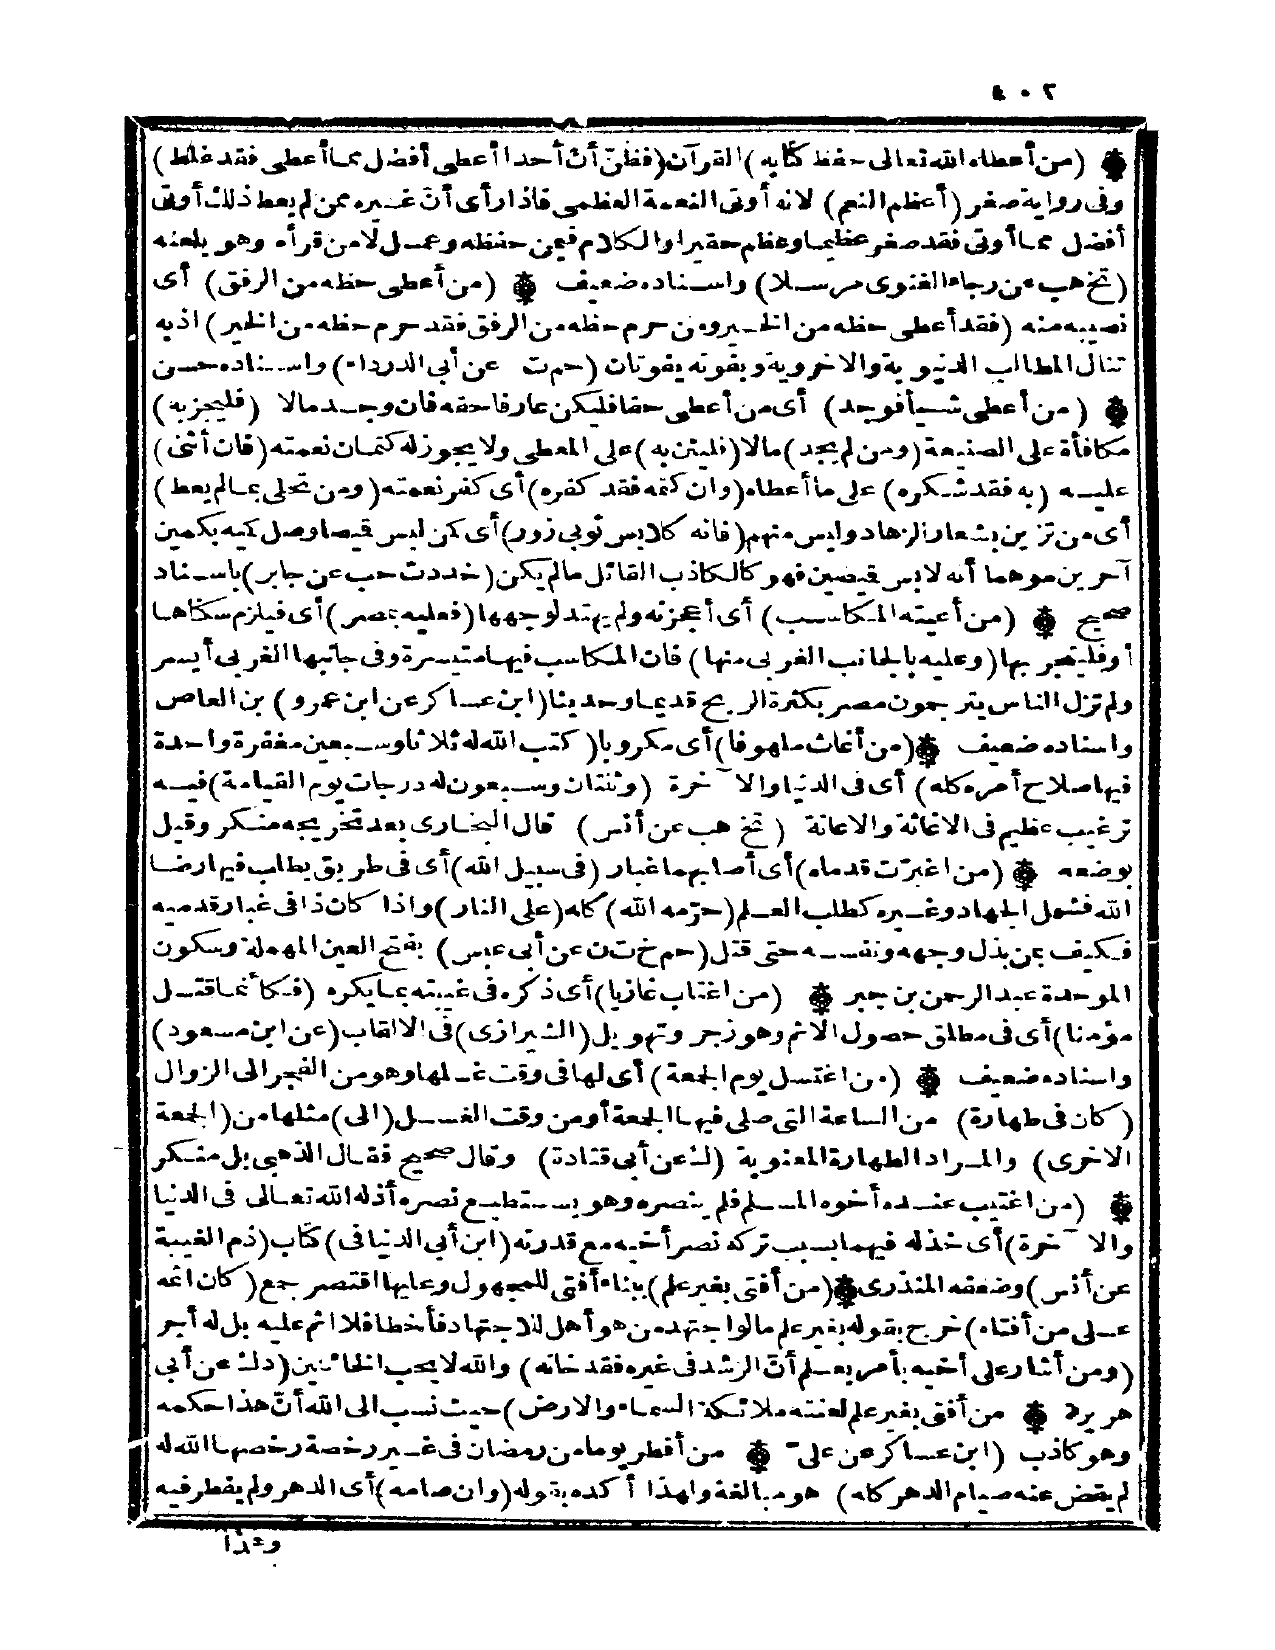 ٤٠٢
(من أعطاه الله تعالى حفظ كتابه) القرآن (فظن أن أحدا أعطى أفضل مما أعطى فقد غلط)
وفى رواية صغر (أعظم النعم) لانه أوتى النعمة العظمى فاذا رأى أن غيره ممن لم يعط ذلك أوتى
أفضل مما أوتى فقد صغر عظيما وعظم حقيرا والكلام فيمن حفظه وعمل لا من قرأه وهو يلعنه
(تخ هب عن رجاء الغنوى مرسلا) واسناده ضعيف (من أعطى حظه من الرفق) أى
نصيبه منه (فقد أعطى حظه من الخير ومن حرم حظه من الرفق فقد حرم حظه من الخير) اذبه
تنال المطالب الدنيوية والاخروية وبفوته يفوتان (حم ت عن أبى الدرداء) واسناده حسن
(من أعطى شيأ فوجد) أى من أعطى حقا فليكن عارفا حقه فان وجد مالا (فليجز به)
مكافأة على الصنيعة (ومن لم يجد) مالا (فليثن به) على المعطى ولا يجوز له كتمان نعمته (فان أثنى)
عليه (به فقد شكره) على ما أعطاه (وان كتمه فقد كفره) أى كفر نعمته (ومن تحلى بما لم يعط)
أى من تزين بشعار الزهاد وليس منهم (فانه كلابس ثوبى زور) أى كمن لبس قميصا وصل كميه بكمين
آخرين موهما أنه لابس قميصين فهو كالكاذب القائل ما لم يكن (خد د ت حب عن جابر) باسناد
صحيح (من أعيته المكاسب) أى أعجزته ولم يهتد لوجهها (فعليه بمصر) أى فيلزم سكناها
أوفليتجر بها (وعليه بالجانب الغربى منها) فان المكاسب فيها متيسرة وفى جانبها الغربى أيسر
ولم تزل الناس يترجون مصر بكثرة الربح قديما وحديثا (ابن عساكر عن ابن عمرو) بن العاص
واسناده ضعيف (من أغاث ملهوفا) أى مكروبا (كتب الله له ثلاثا وسبعين مغفرة واحدة
فيها صلاح أمره كله) أى فى الدنيا والآخرة (وثنتان وسبعون له درجات يوم القيامة) فيه
ترغيب عظيم فى الاغاثة والاعانة (تخ هب عن أنس) قال البخارى بعد تخريجه منكر وقيل
بوضعه (من اغبرت قدماه) أى أصابهما غبار (فى سبيل الله) أى فى طريق يطلب فيها رضا
الله فشمل الجهاد وغيره كطلب العلم (حرمه الله) كله (على النار) واذا كان ذا فى غبار قدميه
فكيف بمن بذل وجهه ونفسه حتى قتل (حم خ ت ن عن أبى عبس) بفتح العين المهملة وسكون
الموحدة عبد الرحمن بن جبر (من اغتاب غازيا) أى ذكره فى غيبته بما يكره (فكأنما قتل
مؤمنا) أى فى مطلق حصول الاثم وهو زجر وتهويل (الشيرازى) فى الالقاب (عن ابن مسعود)
واسناده ضعيف (من اغتسل يوم الجمعة) أى لها فى وقت غسلها وهو من الفجر الى الزوال
(كان فى طهارة) من الساعة التى صلى فيها الجمعة أو من وقت الغسل (الى) مثلها من (الجمعة
الاخرى) والمراد الطهارة المعنوية (ك عن أبى قتادة) وقال صحيح فقال الذهبى بل منكر
(من اغتيب عنده أخوه المسلم فلم ينصره وهو يستطيع نصره أذله الله تعالى فى الدنيا
والآخرة) أى خذله فيهما بسبب تركه نصر أخيه مع قدرته (ابن أبى الدنيا فى) كتاب (ذم الغيبة
عن أنس) وضعفه المنذرى (من أفتى بغير علم) ببناء أفتى للمجهول وعليها اقتصر جمع (كان اثمه
على من أفتاه) خرج بقوله بغير علم مالو اجتهد من هو أهل للاجتهاد فأخطأ فلا اثم عليه بل له أجر
(ومن أشار على أخيه بأمر يعلم أن الرشد فى غيره فقد خانه) والله لا يحب الخائنين (د ك عن أبى
هريرة من أفتى بغير علم لعنته ملائكة السماء والارض) حيث نسب الى الله أن هذا حكمه
وهو كاذب (ابن عساكر عن على) من أفطر يوما من رمضان فى غير رخصة رخصها الله له
لم يقض عنه صيام الدهر كله) هو مبالغة ولهذا أكده بقوله (وان صامه) أى الدهر ولم يفطر فيه
وهذا